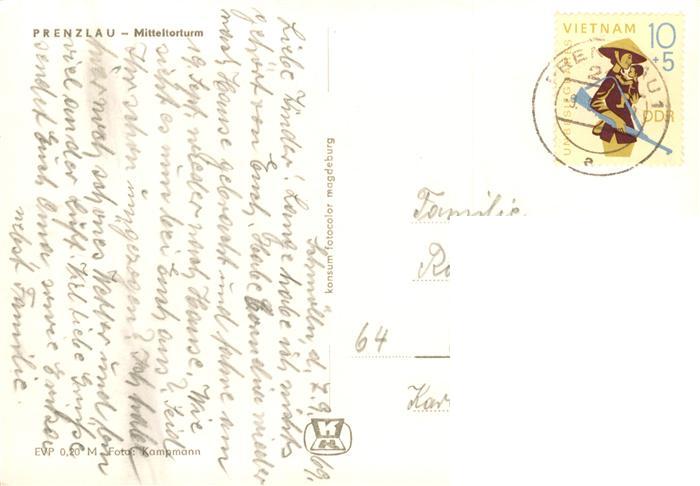 PRENZLAU – Mitteltorturm
Schmölln, d. 7.9.69.
Liebe Kinder! Lange habe ich nichts
gehört von Euch. Habe Cornelia wieder
nach Hause gebracht und fahre am
19. Sept. wieder nach Hause. Wie
sieht es nun bei Euch aus? Seid
Ihr schon umgezogen? Ich habe
hier noch schönes Wetter und bin
viel an der Luft. Herzliche Grüße
sendet Euch Oma sowie
nebst Familie.
EVP 0,20 M Foto: Kampmann
konsum fotocolor magdeburg
VIETNAM 10
+5
UNBESIEGBARES
DDR
PRENZLAU 1
2
a
Familie
64